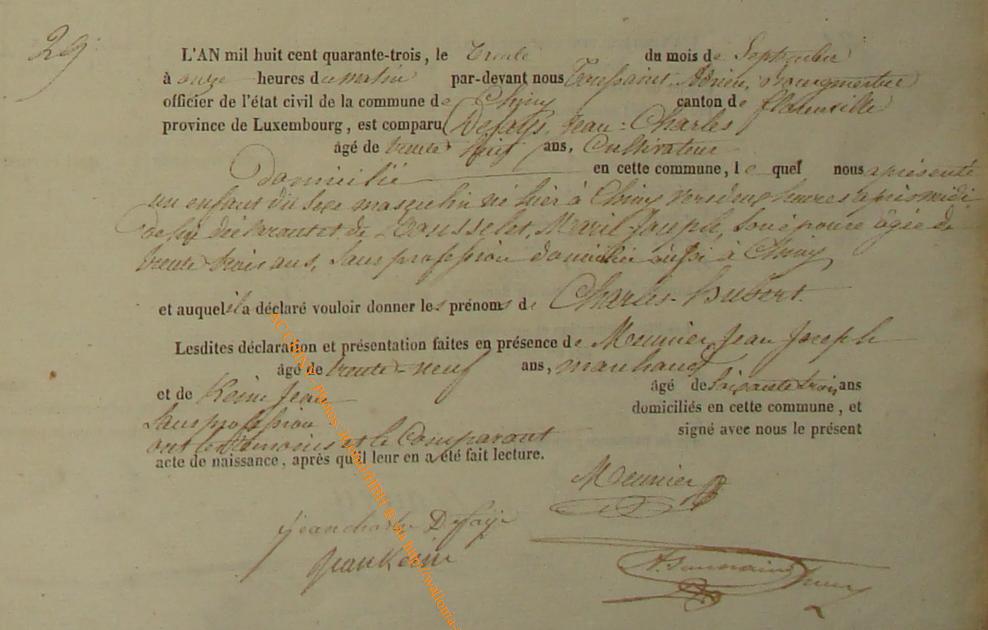 29
L'AN mil huit cent quarante-trois, le Trente du mois de Septembre
à onze heures du matin par-devant nous Toussaint, Adrien, Bourgmestre
officier de l'état civil de la commune de Chiny canton de florenville
province de Luxembourg, est comparu Defays, Jean-Charles
âgé de trente huit ans, Cultivateur
Domicilié en cette commune, le quel nous a présenté
un enfant du sexe masculin né hier à Chiny vers deux heures après midi
de lui déclarant et de Rousselet, Marie Josèphe, son épouse âgée de
trente trois ans, sans profession domiciliée aussi à Chiny
et auquel il a déclaré vouloir donner les prénoms de Charles-Hubert.
Lesdites déclaration et présentation faites en présence de Meunier Jean Joseph
âgé de trente-neuf ans, marchand
et de Keine Jean âgé de soixante trois ans
Sans profession domiciliés en cette commune, et
ont les témoins et le Comparant signé avec nous le présent
acte de naissance, après qu'il leur en a été fait lecture.
Meunier
jean charle Defays
jean Keine
A. Toussaint